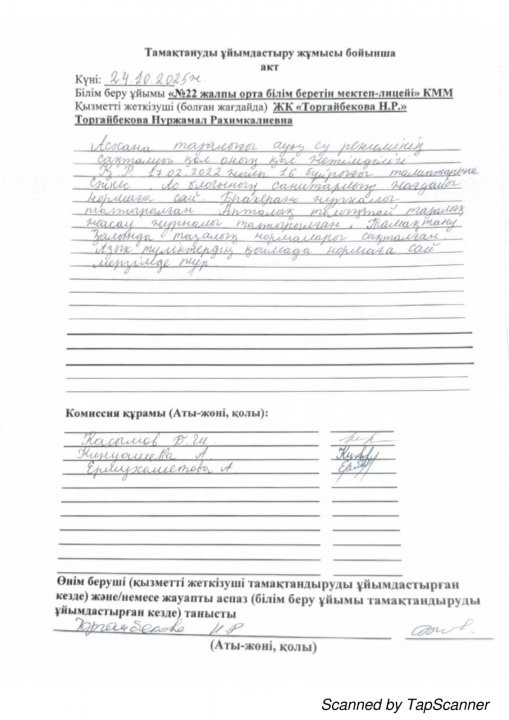 Тамақтануды ұйымдастыру жұмысы бойынша
акт
Күні: 24.10.2025ж
Білім беру ұйымы «№22 жалпы орта білім беретін мектеп-лицейі» КММ
Қызметті жеткізуші (болған жағдайда) ЖК «Торгайбекова Н.Р.»
Торгайбекова Нуржамал Рахимкалиевна
Асхана тазалығы ауыз су режимінің
сақталуы қол оның қол жетімділігі
Қ.Р. 17.02.2022 жылғы 16 бұйрығы талаптарына
сәйкес. Ас блогының санитарлық жағдайы
нормаға сай. Бракераж журналы
толтырылған Апталық тазалық
жасау журналы толтырылған. Тамақтану
залында тазалық нормалары сақталған
Азық түліктердің қоймада нормаға сай
мерзімде тұр.
Комиссия құрамы (Аты-жөні, қолы):
Касымов Б.Ш.
А.
А
Өнім беруші (қызметті жеткізуші тамақтандыруды ұйымдастырған
кезде) және/немесе жауапты аспаз (білім беру ұйымы тамақтандыруды
ұйымдастырған кезде) танысты
Торгайбекова Н.Р
(Аты-жөні, қолы)
Scanned by TapScanner